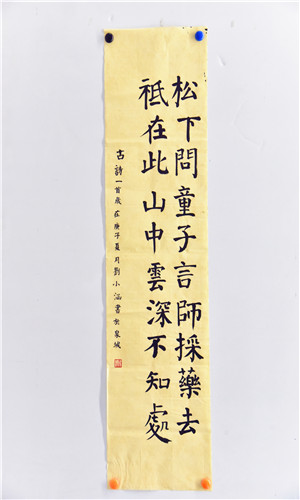 松下問童子言師採藥去
祗在此山中雲深不知處
古詩一首歲在庚子夏月劉小涵書於泉城